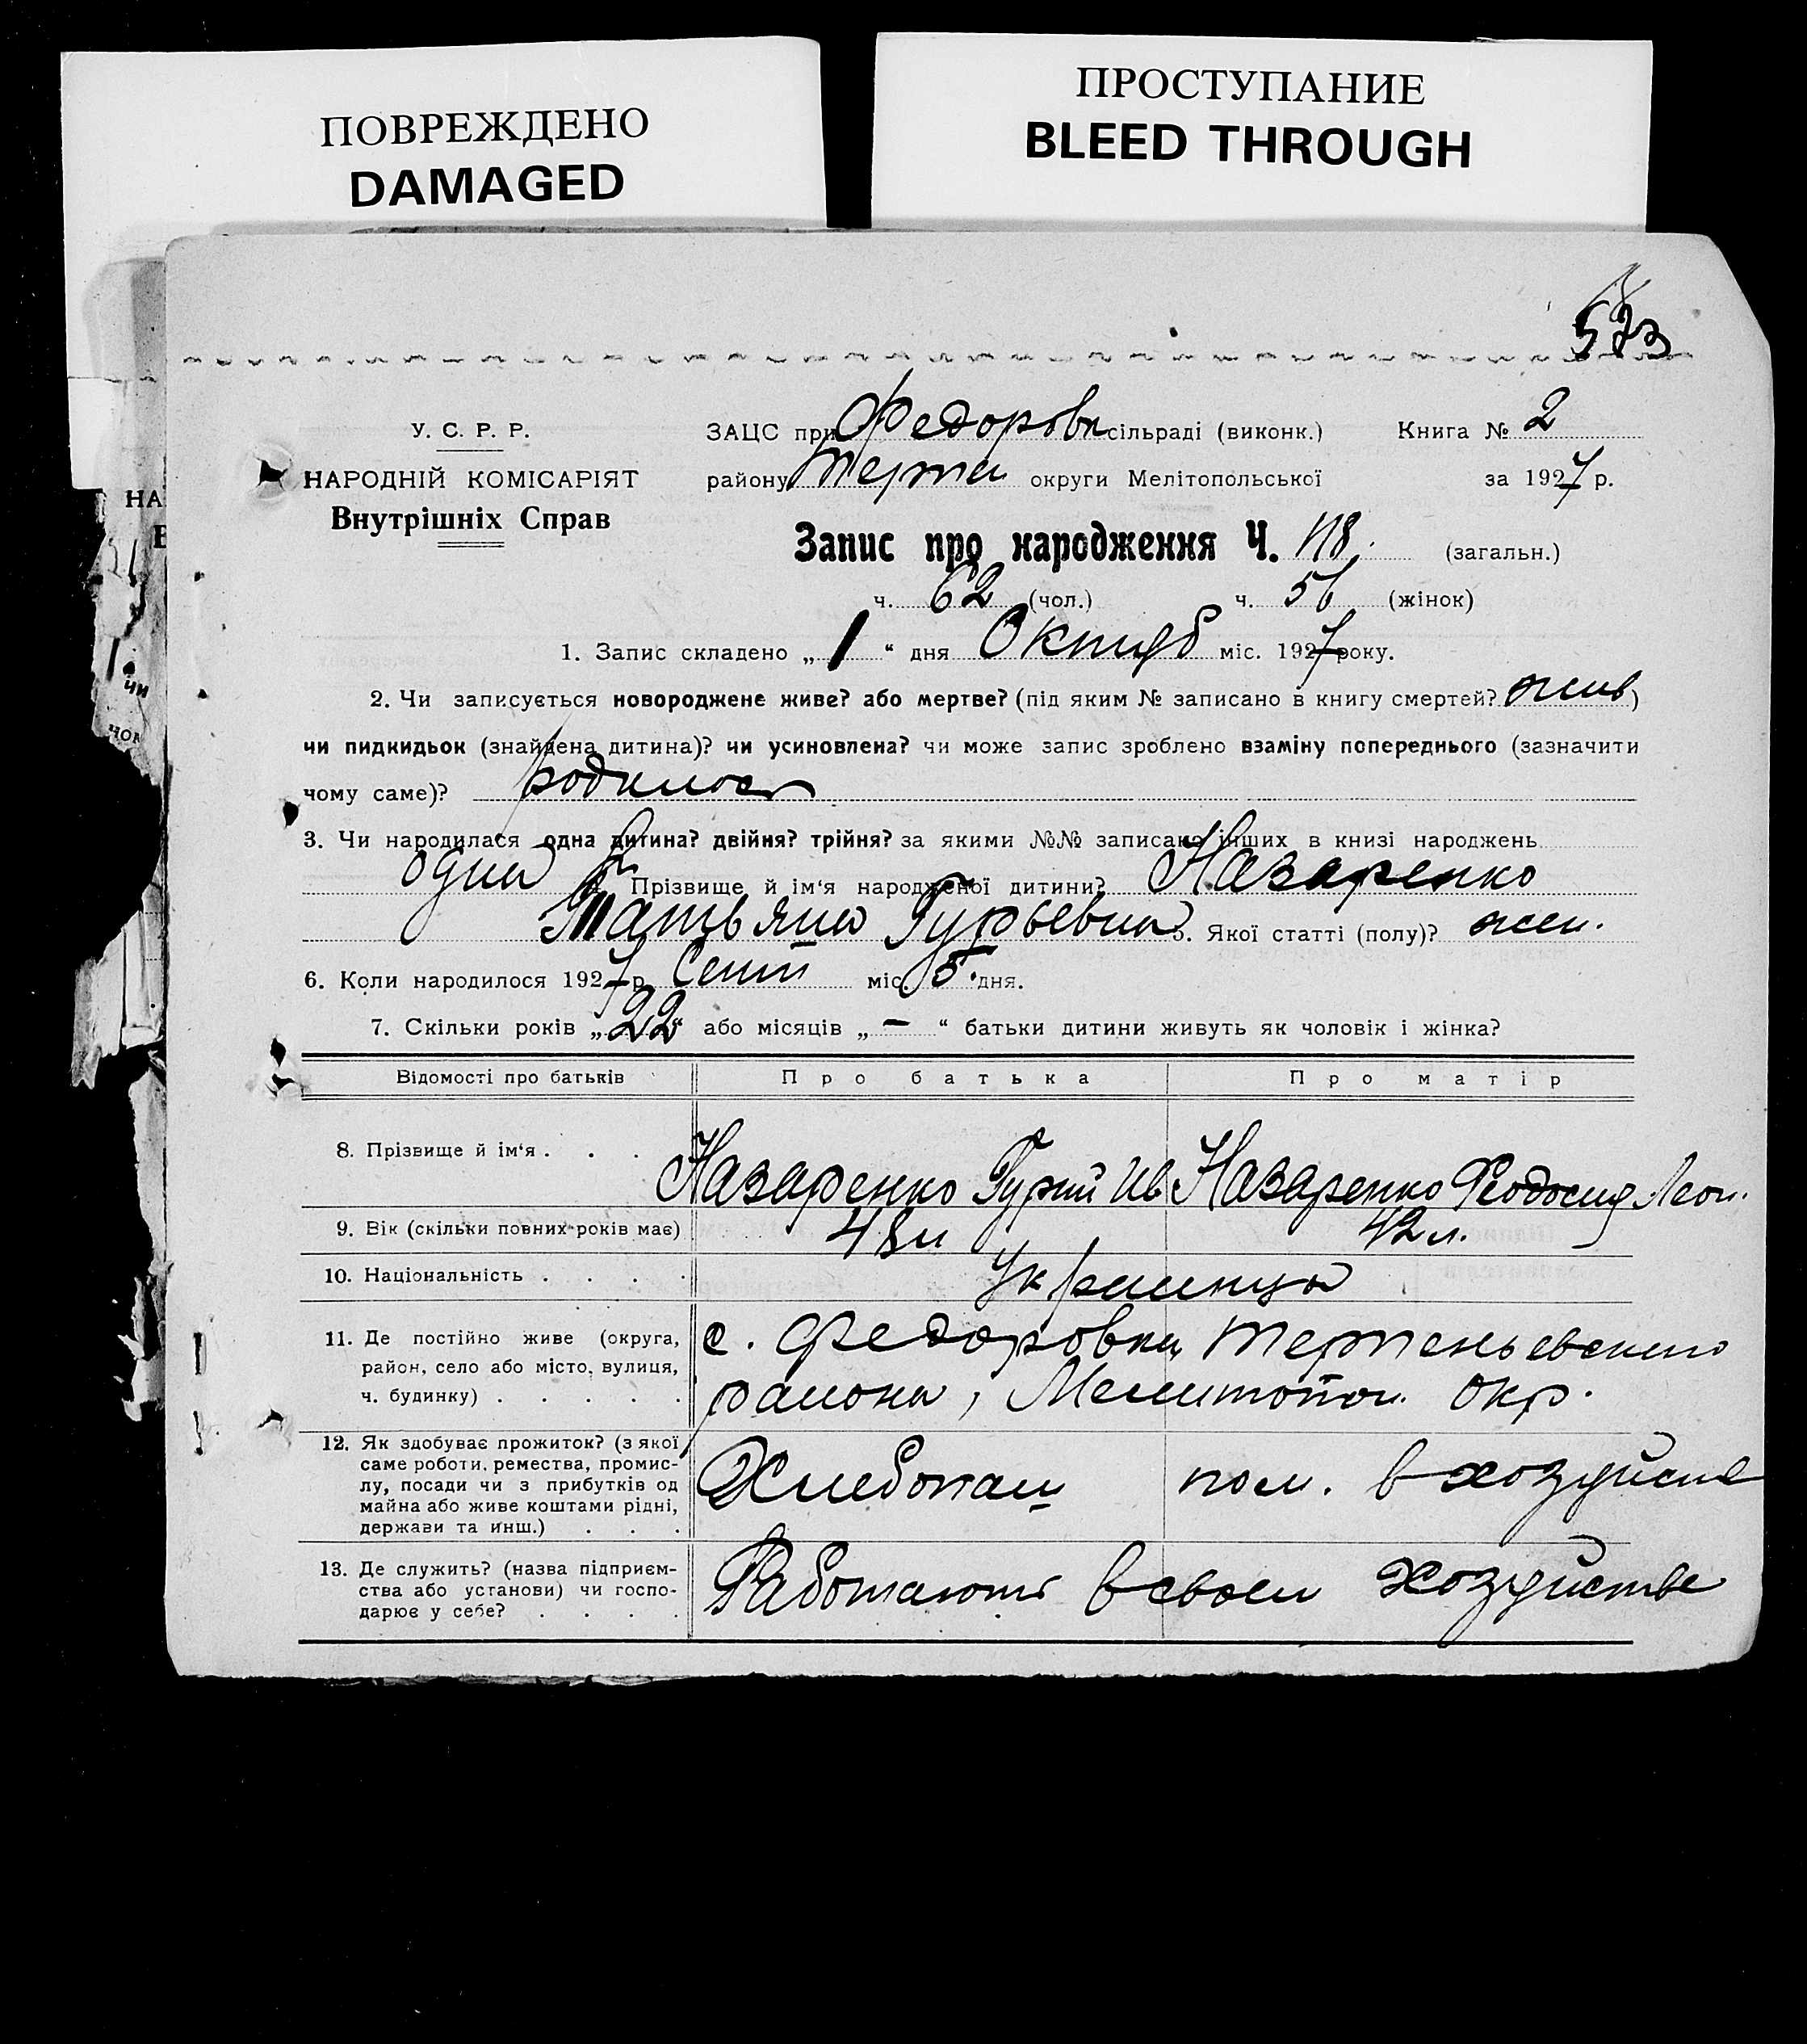 ПОВРЕЖДЕНО
DAMAGED
ПРОСТУПАНИЕ
BLEED THROUGH
573
У. С. Р. Р.
НАРОДНІЙ КОМІСАРІЯТ
Внутрішніх Справ
ЗАЦС при Федоровк сільраді (виконк.) Книга № 2
району Терпен округи Мелітопольської за 1927 р.
Запис про народження Ч. 118. (загальн.)
ч. 62 (чол.) ч. 56 (жінок)
1. Запис складено „ 1 “ дня Октяб міс. 1927 року.
2. Чи записується новороджене живе? або мертве? (під яким № записано в книгу смертей? жив)
чи пидкидьок (знайдена дитина)? чи усиновлена? чи може запис зроблено взаміну попереднього (зазначити
чому саме)? родилось
3. Чи народилася одна дитина? двійня? трійня? за якими №№ записано інших в книзі народжень
одна Прізвище й ім‘я народженої дитини? Назаренко
Татьяна Гурьевна 5. Якої статті (полу)? жен.
6. Коли народилося 1927 р. Сент міс. 5. дня.
7. Скільки років „ 22 “ або місяців „ — “ батьки дитини живуть як чоловік і жінка?
Відомості про батьків Про батька Про матір
8. Прізвище й ім‘я . . . Назаренко Гурий Ив Назаренко Феодосия Леон.
9. Вік (скільки повних років має) 48 л 42 л.
10. Національність . . . . Украинцы
11. Де постійно живе (округа, с. Федоровка, Терпеньевского
район, село або місто, вулиця,
ч. будинку) . . . . . района, Мелитопол. Окр.
12. Як здобуває прожиток? (з якої
саме роботи, ремества, промис-
лу, посади чи з прибутків од Хлебопаш пом. в хозяйстве
майна або живе коштами рідні,
держави та инш.) . . .
13. Де служить? (назва підприєм-
ства або установи) чи госпо- Работают в своем хозяйстве
дарює у себе? . . . .